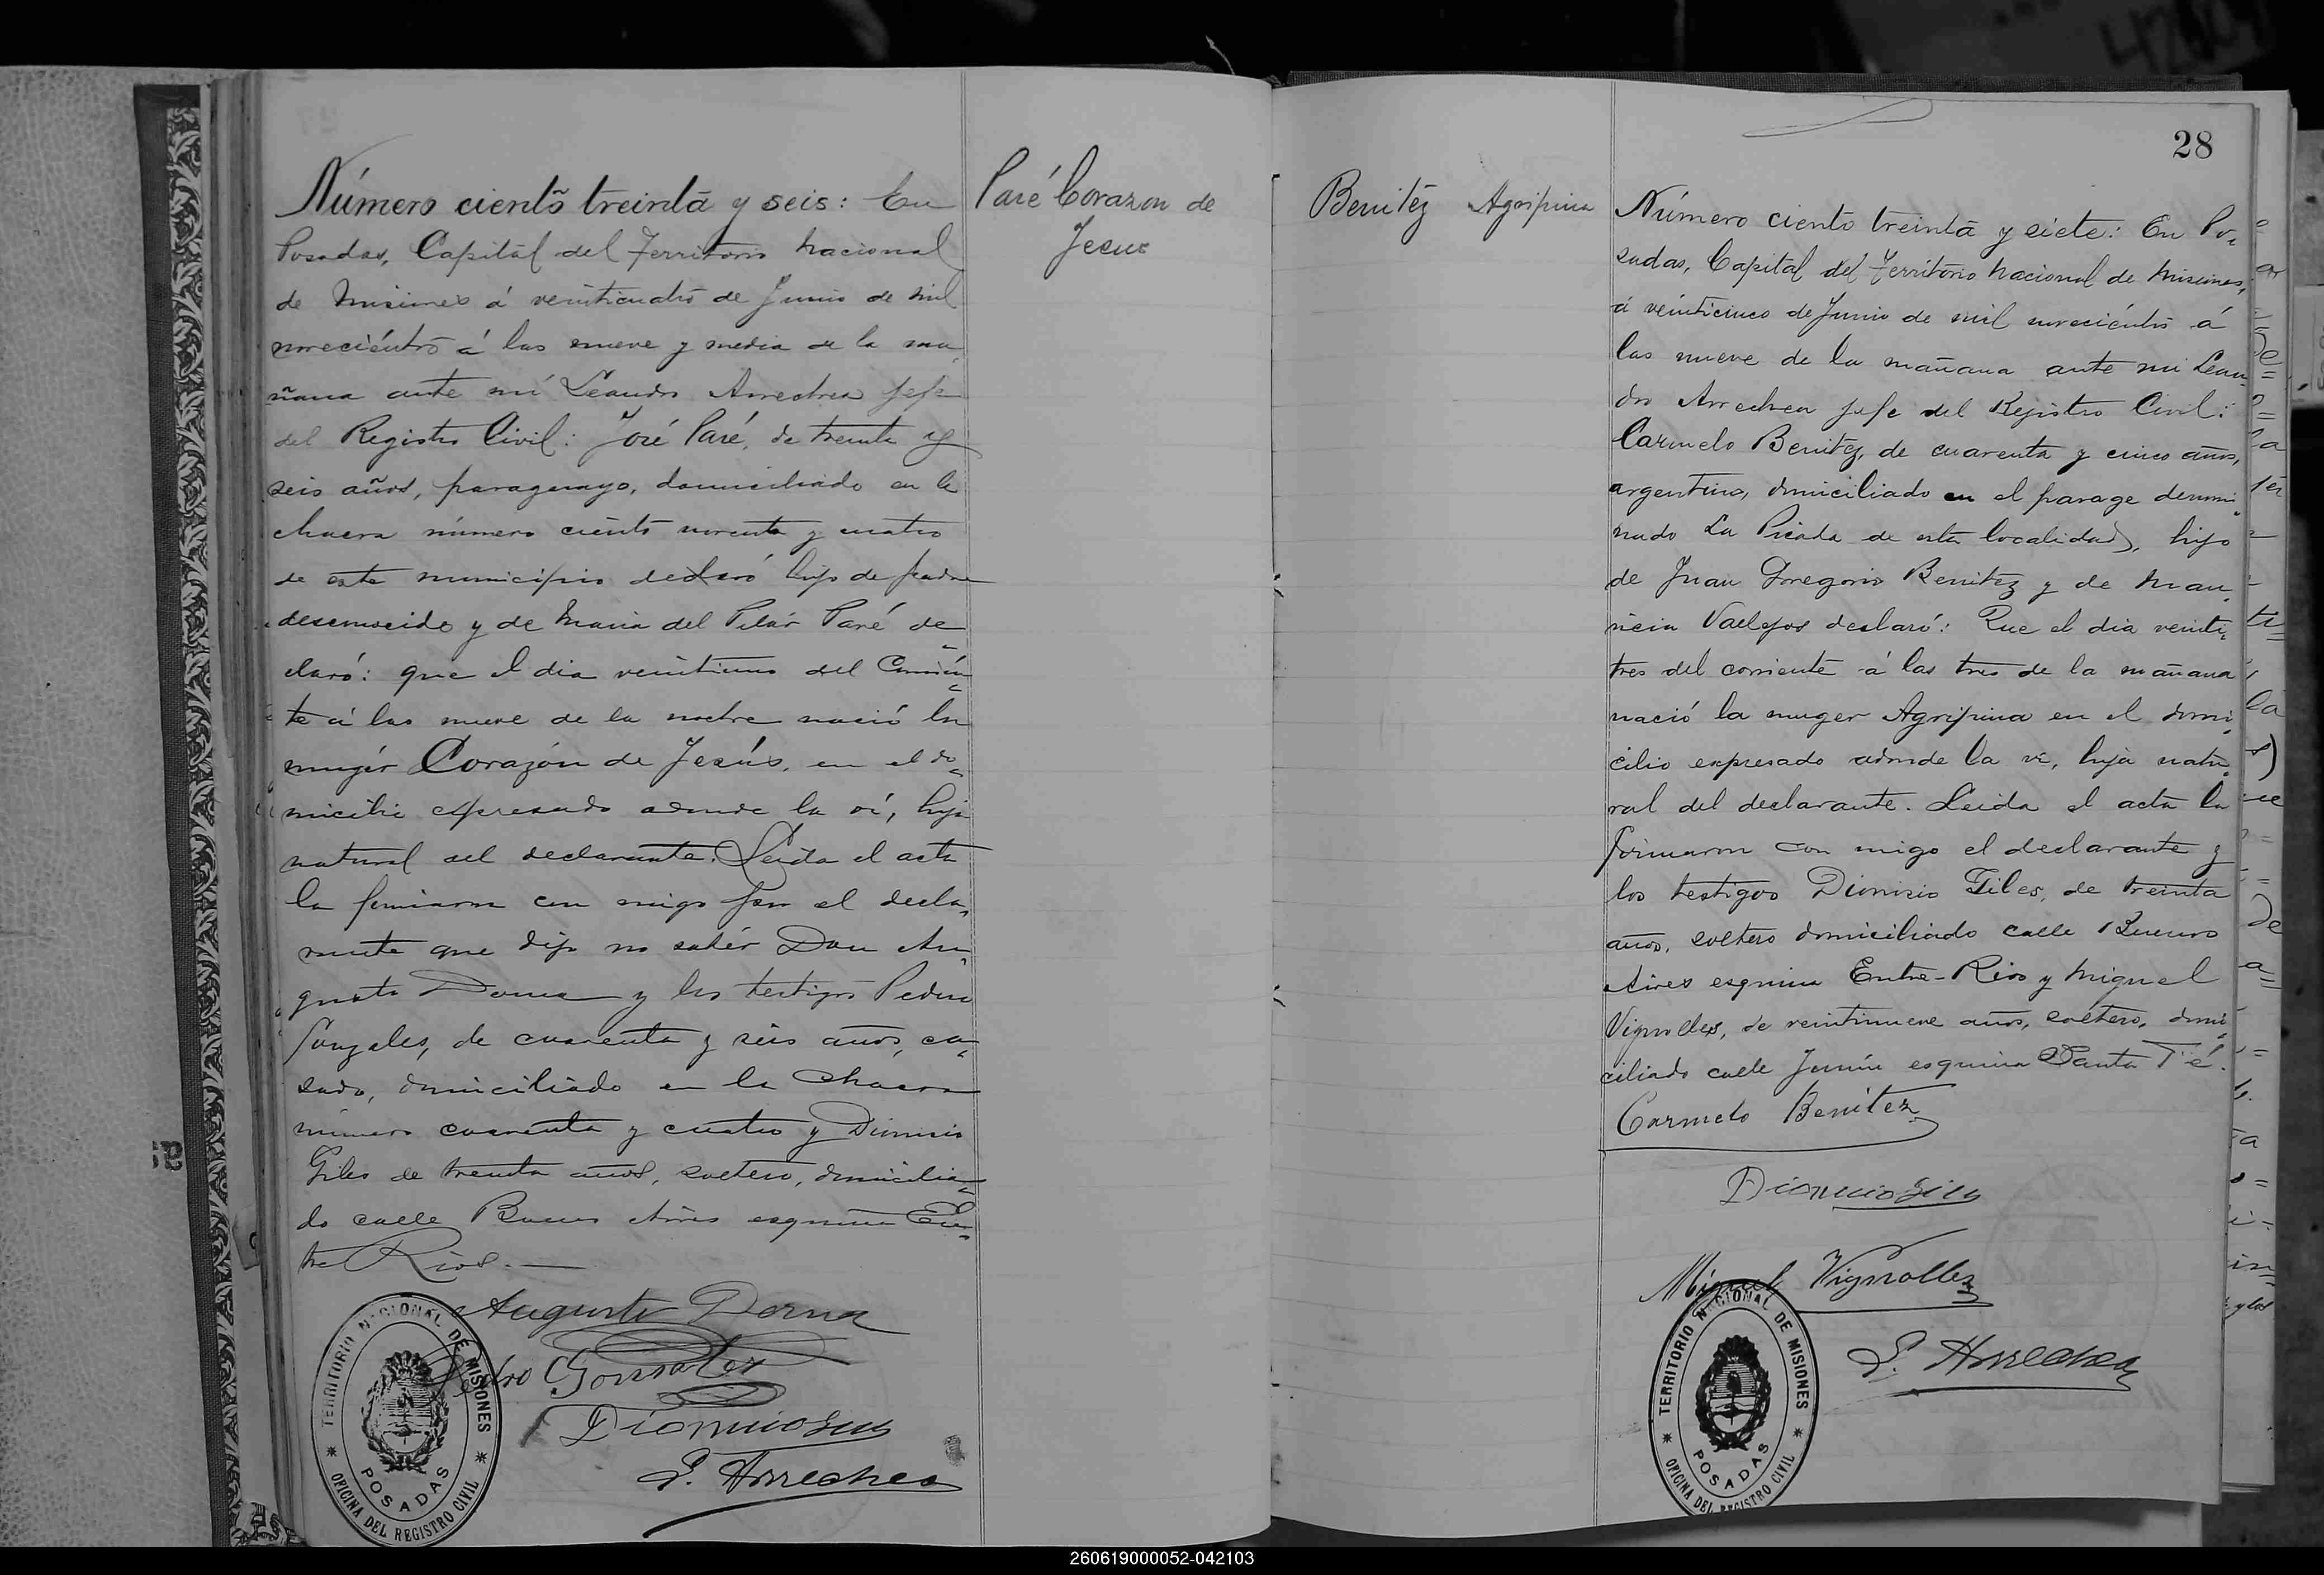 Número ciento treinta y seis: En
Posadas, Capital del Territorio Nacional
de Misiones á veinticuatro de Junio de mil
novecientos á las nueve y media de la ma,
ñana ante mi Leandro Arrechea Jefe
del Registro Civil: José Paré, de treinta y
seis años, paraguayo, domiciliado en la
chacra número ciento noventa y cuatro
de este municipio declaró hijo de padre
desconocido y de Maria del Pilár Paré de=
claró: que el dia veintiuno del Corrien=
te á las nueve de la noche nació la
mugér Corazón de Jesús, en el do=
micilio espresado adonde la ví, hija
natural del declarante. Leida el acta
la firmaron con migo por el decla,
rante que dijo no sabér Don Au,
gusto Dorna y los testigos Pedro
Gonzales, de cuarenta y seis años, ca,
sado, domiciliado en la chacra
número cuarenta y cuatro y Dionisio
Giles de treinta años, soltero, domicilia=
do calle Buenos Aires esquina En=
tre Rios.—
Augusto Dorna
Pedro Gonzalez
L. Arrechea
TERRITORIO NACIONAL DE MISIONES
POSADAS
OFICINA DEL REGISTRO CIVIL
Paré Corazon de
Jesus
Benitéz Agripina
28
Número ciento treinta y siete: En Po=
sadas, Capital del Territorio Nacional de Misiones,
á veinticinco de Junio de mil novecientos á
las nueve de la mañana ante mi Lean=
dro Arrechea Jefe del Registro Civil:
Carmelo Benitéz, de cuarenta y cinco años,
argentino, domiciliado en el parage denomi=
nado La Picada de esta localidad, hijo
de Juan Gregorio Benitéz y de Mau,
ricia Vallejos declaró: Que el dia veinti,
tres del corriente á las tres de la mañana
nació la muger Agripina en el domi,
cilio expresado adonde la ví, hija natu,
ral del declarante. Leida el acta la
firmaron con migo el declarante y
los testigos Dionisio Giles, de treinta
años, soltero domiciliado calle Buenos
Aires esquina Entre-Rios y Miguel
Vignolles, de veintinueve años, soltero, domi,
ciliado calle Junín esquina Santa Fé.
Carmelo Benitez
Miguel Vignolles
L. Arrechea
TERRITORIO NACIONAL DE MISIONES
POSADAS
OFICINA DEL REGISTRO CIVIL
260619000052-042103